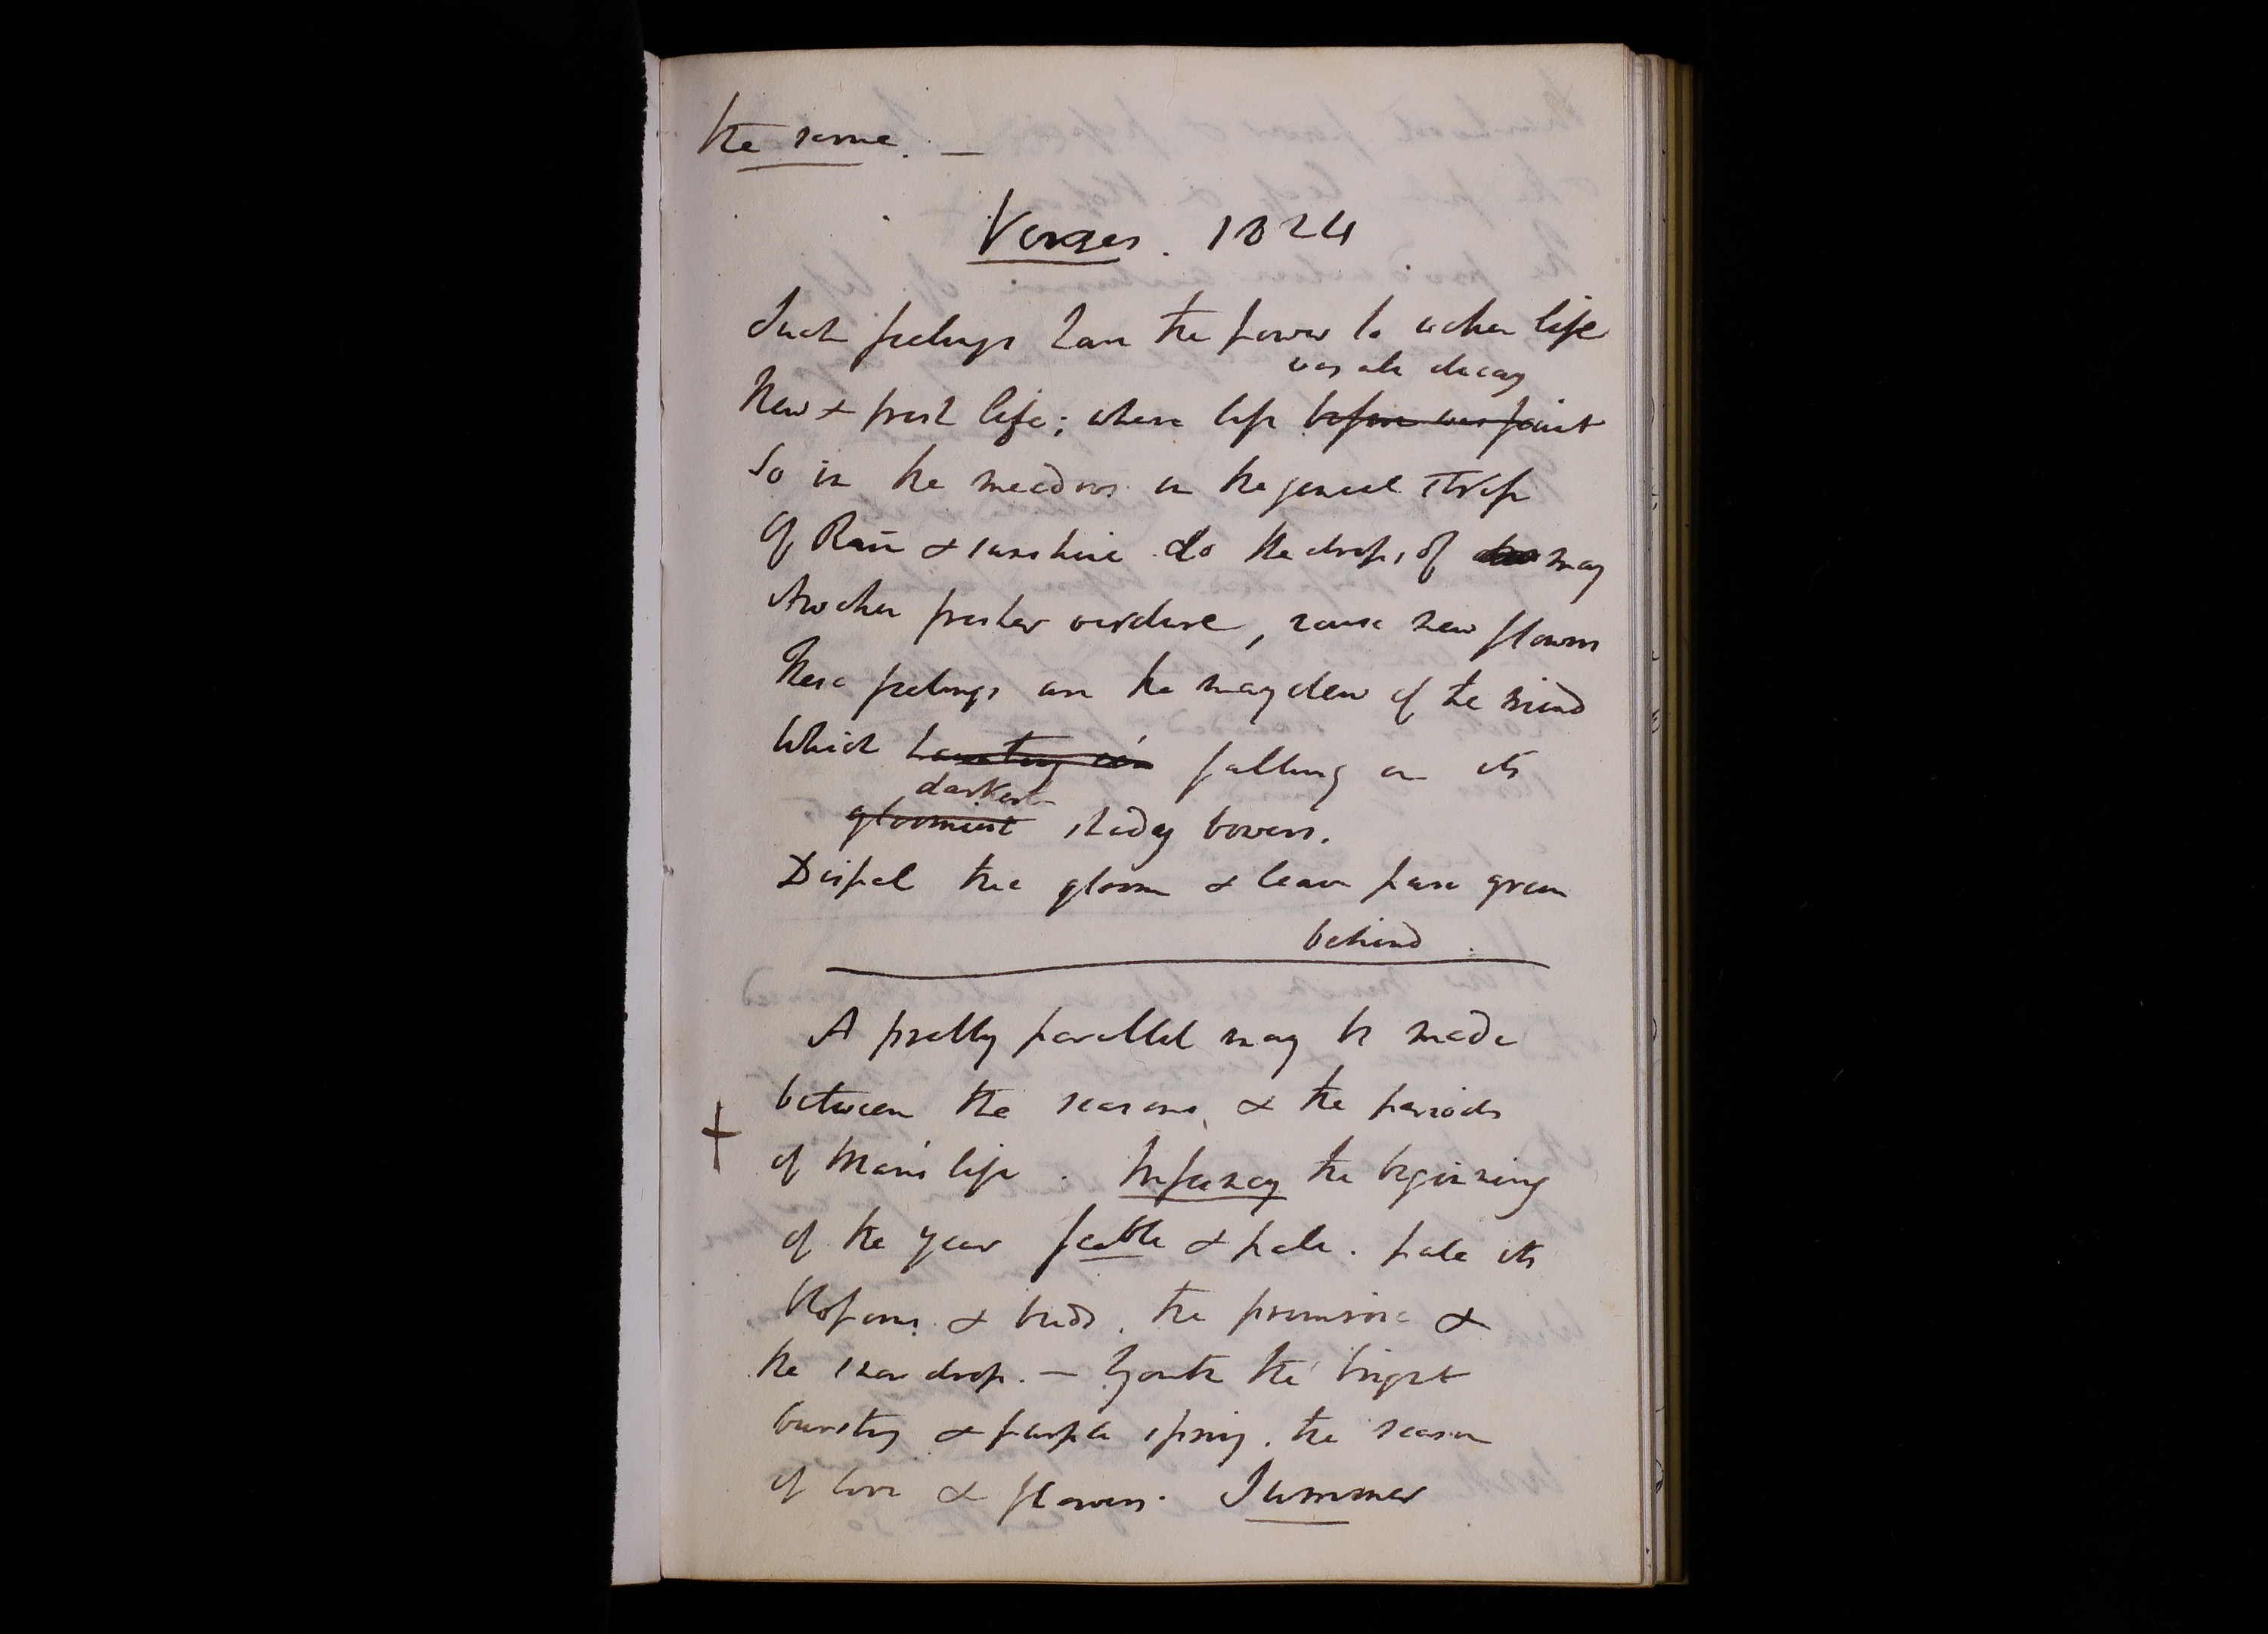 the same. —
Verses. 1824
Such feelings have the power to waken life
was all decay
New & fresh life; where life before was faint
So in the meadows in the genial strife
Of Rain & sunshine do the drops of may
Awaken fresher verdure, rouse new flowers
These feelings are the may dew of the mind
Which falling on its
darkest
gloomiest shady bowers.
Dispel the gloom & leave pure green
behind
A pretty parallel may be made
between the seasons, & the periods
+
of Man's life. Infancy the beginning
of the year feeble & pale. pale its
blossoms & buds. the primrose &
the snow drop. — Youth the bright
bursting & purple spring. the season
of love & flowers. Summer